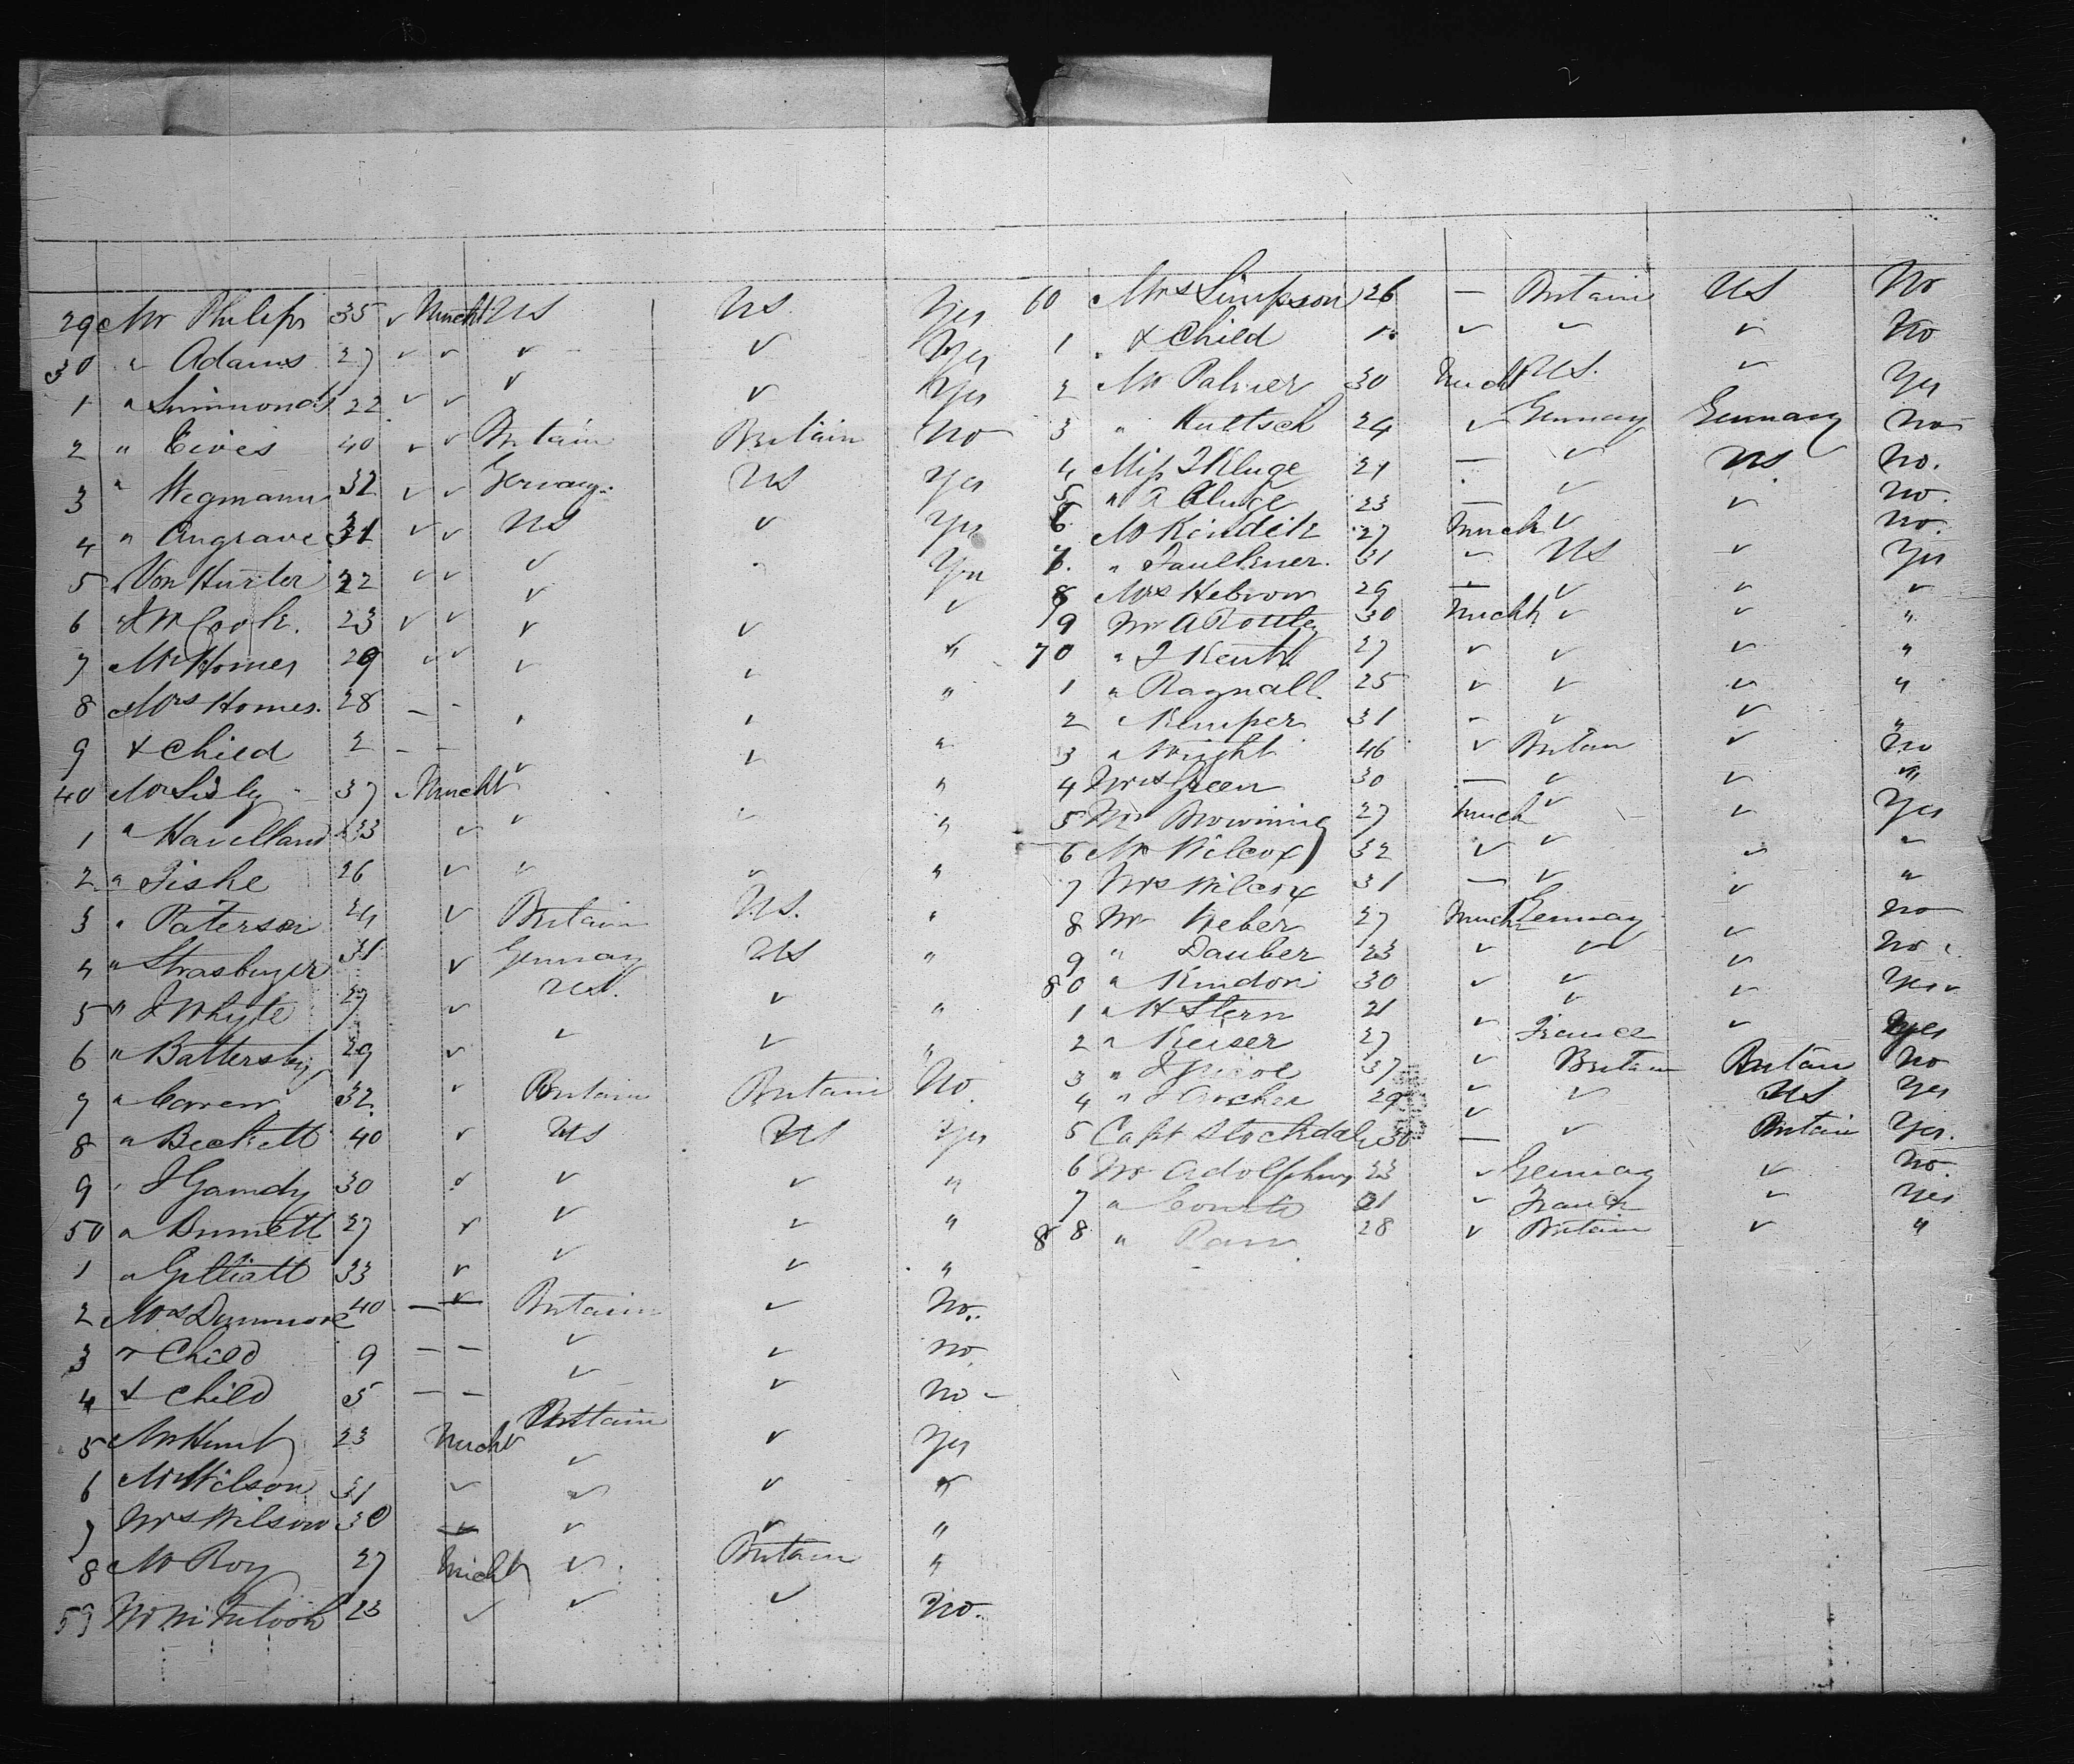 29 Mr Philips 35 " Mercht US US. Yes
30 " Adams 27 " " " " Yes
1 " Simmonds 22 " " " " Yes
2 " Eives 40 " " Britain Britain No
3 " Wegmann 32 " " Germany US Yes
4 " Angrave 31 " " US " Yes
5 " Von Hurter 22 " " " " Yes
6 " J W Cook. 23 " " " "
7 Mr Homes 29 " " " " "
8 Mrs Homes. 28 - - " " "
9 & Child 2 - - " " "
40 Mr Sisley 37 Mercht " " "
1 " Havilland 33 " " " "
2 " Fiske 26 " " " "
3 " Paterson 24 " Britain U.S. "
4 " Strasburger 31 " Germany US "
5 " J Whyte 27 " US. " "
6 " Battersby 29 " " " "
7 " Carrew 32 " Britain Britain No.
8 " Beckett 40 " US US Yes
9 " J Gamdy 30 " " " "
50 " Burnett 27 " " " "
1 " Gilliatt 33 " " " "
2 Mrs Dunmore 40 - - Britain " No.
3 & Child 9 - - " " No.
4 & Child 5 - - " " No -
5 Mr Hunt 23 Mercht Brittain " Yes
6 Mr Wilson 31 " " " "
7 Mrs Wilson 30 - " " "
8 Mr Roy 27 Mercht " Britain "
59 Mr McIntosh 23 " " " No.
60 Mrs Simpson 26 - Britain US No
1 " & Child 1 " " " No
2 Mr Palmer 30 Mercht US. " Yes
3 " Hultsch 24 " Germany Germany No
4 Miss J Kluge 21 - " US No.
5 " A Kluge 23 - " " No.
6 Mr Kindik 27 Merch " " No.
7. " Faulkner. 31 " US " Yes
8 Mrs Hebron 29 - " " "
9 Mr A Rottley 30 Mercht " " "
70 " J Kent 27 " " " "
1 " Bagnall. 25 " " " "
2 " Kemper 31 " " " "
3 " Wright 46 " Britain " No
4 Mrs Green 30 - " " "
5 Mr Browning 27 Merch " " Yes
6 Mr Wilcox 32 " " " "
7 Mrs Wilcox 31 - " " "
8 Mr Weber 27 Mercht Germany " No
9 " Dauber 23 " " " No
80 " Kindon 30 " " " Yes
1 " H Stern 21 " " "
2 " Keiser 27 " France " Yes
3 " J Price 37 " Britain Britain No
4 " J Archer 29 " " US Yes
5 Capt Stockdale 30 - " Britain Yes.
6 Mr Adolphus 23 " Germany " No.
7 " Courts 21 " France " Yes
88 " Parr 28 " Britain " "